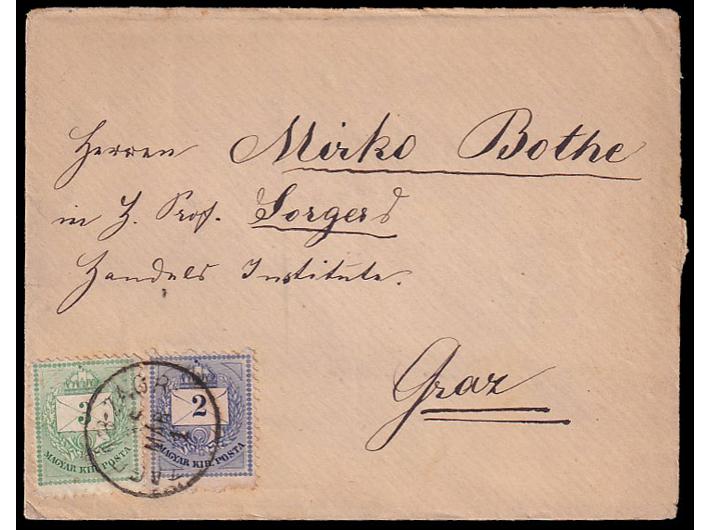 Herren Mirko Bothe
in H. Prof. Sorgers
Handels Institute.
Graz
3
2
MAGYAR KIR. POSTA
MAGYAR KIR. POSTA
ZAGR
MÁR